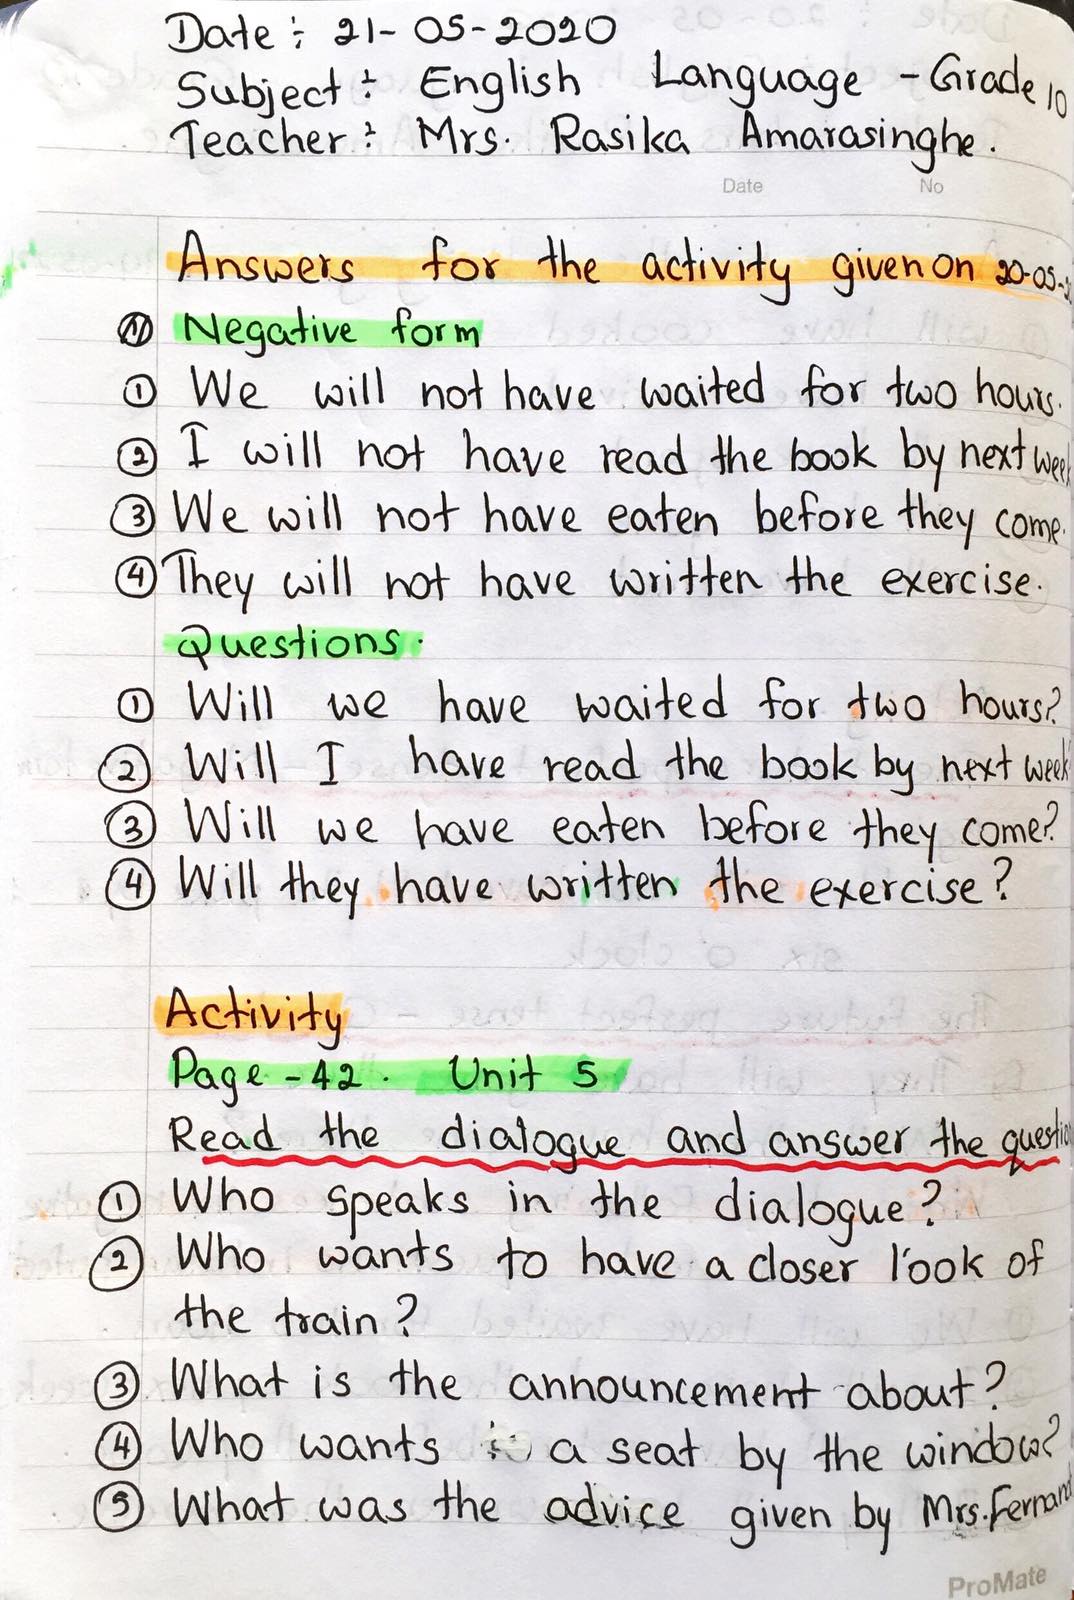 Date : 21-05-2020
Subject : English Language - Grade 10
Teacher : Mrs. Rasika Amarasinghe.
Date No
Answers for the activity given on 20-05-2
Negative form
① We will not have waited for two hours.
② I will not have read the book by next week
③ We will not have eaten before they come.
④ They will not have written the exercise.
Questions.
① Will we have waited for two hours?
② Will I have read the book by next week
③ Will we have eaten before they come?
④ Will they have written the exercise?
Activity
Page - 42. Unit 5
Read the dialogue and answer the questio
① Who speaks in the dialogue?
② Who wants to have a closer look of
the train?
③ What is the announcement about?
④ Who wants a seat by the window?
⑤ What was the advice given by Mrs. Fernand
ProMate